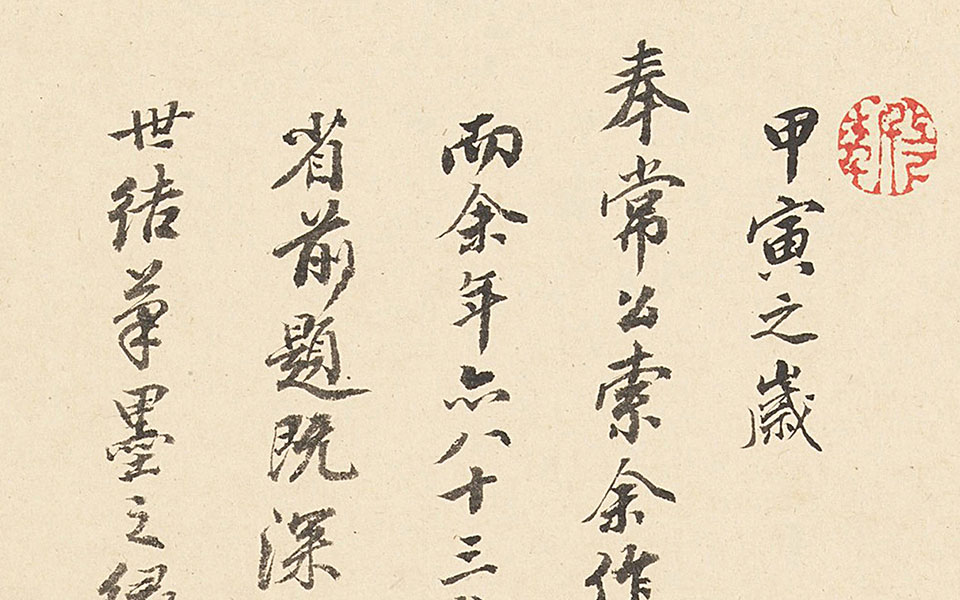 甲寅之歲
奉常公索余作
而余年亦八十三
省前題既深
世結筆墨之緣